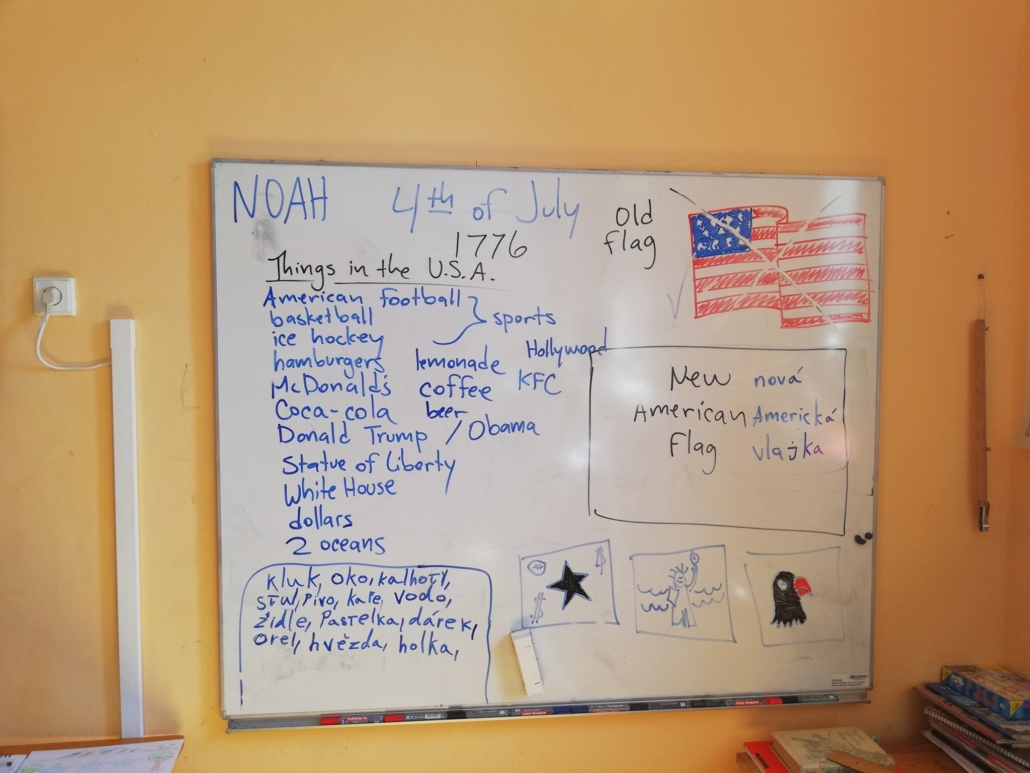 NOAH
4th of July
1776
Things in the U.S.A.
American football
basketball
ice hockey
sports
hamburgers
McDonald's
Coca-cola
lemonade
coffee
beer
Hollywood
KFC
Donald Trump / Obama
Statue of Liberty
White House
dollars
2 oceans
kluk, oko, kalhoty,
stul, Pivo, kafe, vodo,
židle, Pastelka, dárek,
orel, hvězda, holka,
old
flag
New nová
American Americká
Flag vlajka
$
$